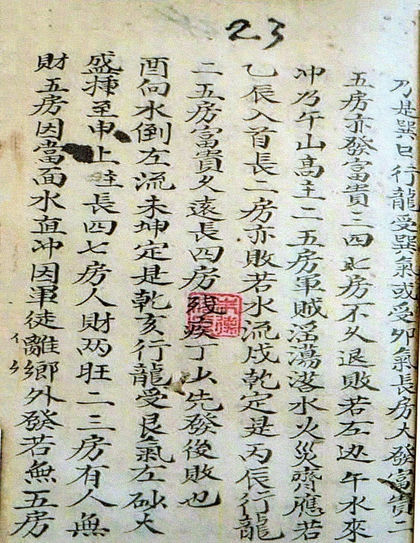 23
乃是巽巳行龍受巽氣或受卯氣長房大發富貴二
五房亦發富貴二四七房不久退敗若左边午水來
冲乃午山高主二五房軍賊滛蕩水火災齊應若
乙辰入首長二房亦敗若水流戌乾定是丙辰行龍
二五房富貴久遠長四房殘疾丁少先發後敗也
酉向水倒左流未坤定是乾亥行龍受艮氣左砂大
盛揷至申上註長四七房人財两旺二三房有人無
財五房因當面水直冲因軍徒離鄉外發若無五房